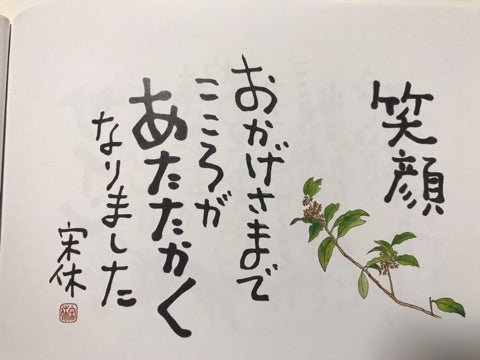 笑顔
おかげさまで
こころが
あたたかく
なりました
宋休